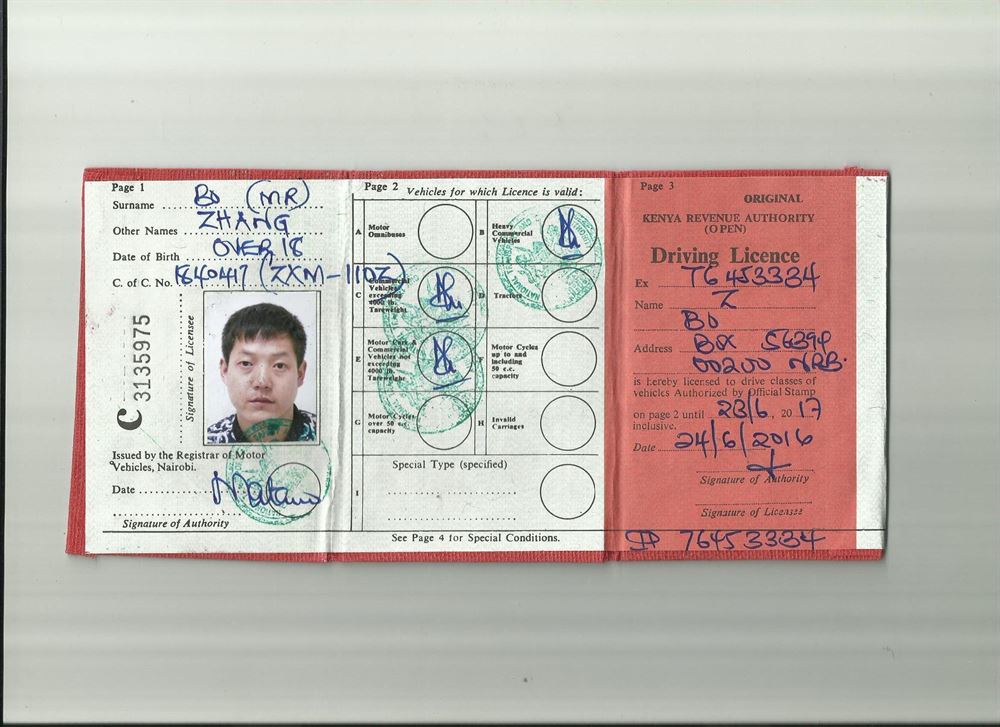 Page 1
Surname BO (MR)
Other Names ZHANG
Date of Birth OVER 18
C. of C. No. 1840447 (ZXM-110Z)
C 3135975
Signature of Licensee
Issued by the Registrar of Motor
Vehicles, Nairobi.
Date
Signature of Authority
Page 2
Vehicles for which Licence is valid:
A Motor Omnibuses
B Heavy Commercial Vehicles
C Commercial Vehicles exceeding 4000 lb. Tareweight
D Tractors
E Motor Cars & Commercial Vehicles not exceeding 4000 lb. Tareweight
F Motor Cycles up to and including 50 c.c. capacity
G Motor Cycles over 50 c.c. capacity
H Invalid Carriages
Special Type (specified)
I
See Page 4 for Special Conditions.
Page 3
ORIGINAL
KENYA REVENUE AUTHORITY
(OPEN)
Driving Licence
Ex 76453334
Name Z
BO
Address BOX 56394
00200 NRB.
is hereby licensed to drive classes of
vehicles Authorized by Official Stamp
on page 2 until 23/6, 2017
inclusive.
Date 24/6/2016
Signature of Authority
Signature of Licensee
76453334